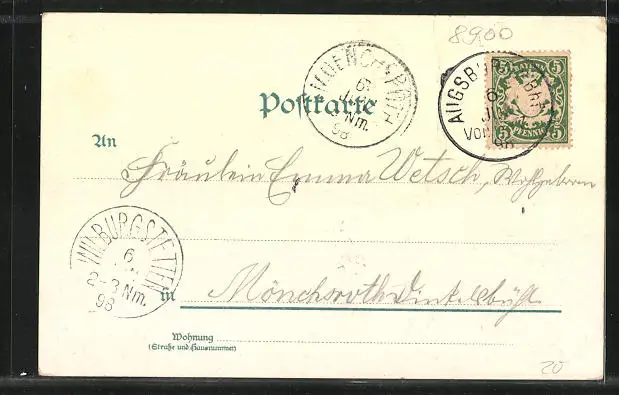 8900
MUENCHSROTH
6
Nm.
98
AUGSBURG
6
VOR
98
BAYERN
5 5
5 5
PFENNIG
Postkarte
An
Fräulein Emma Wetsch, Wohlgeboren
WILBURGSTETTEN
6
2-3 Nm.
98
in Mönchsroth Dinkelsbühl
Wohnung
(Straße und Hausnummer)
20